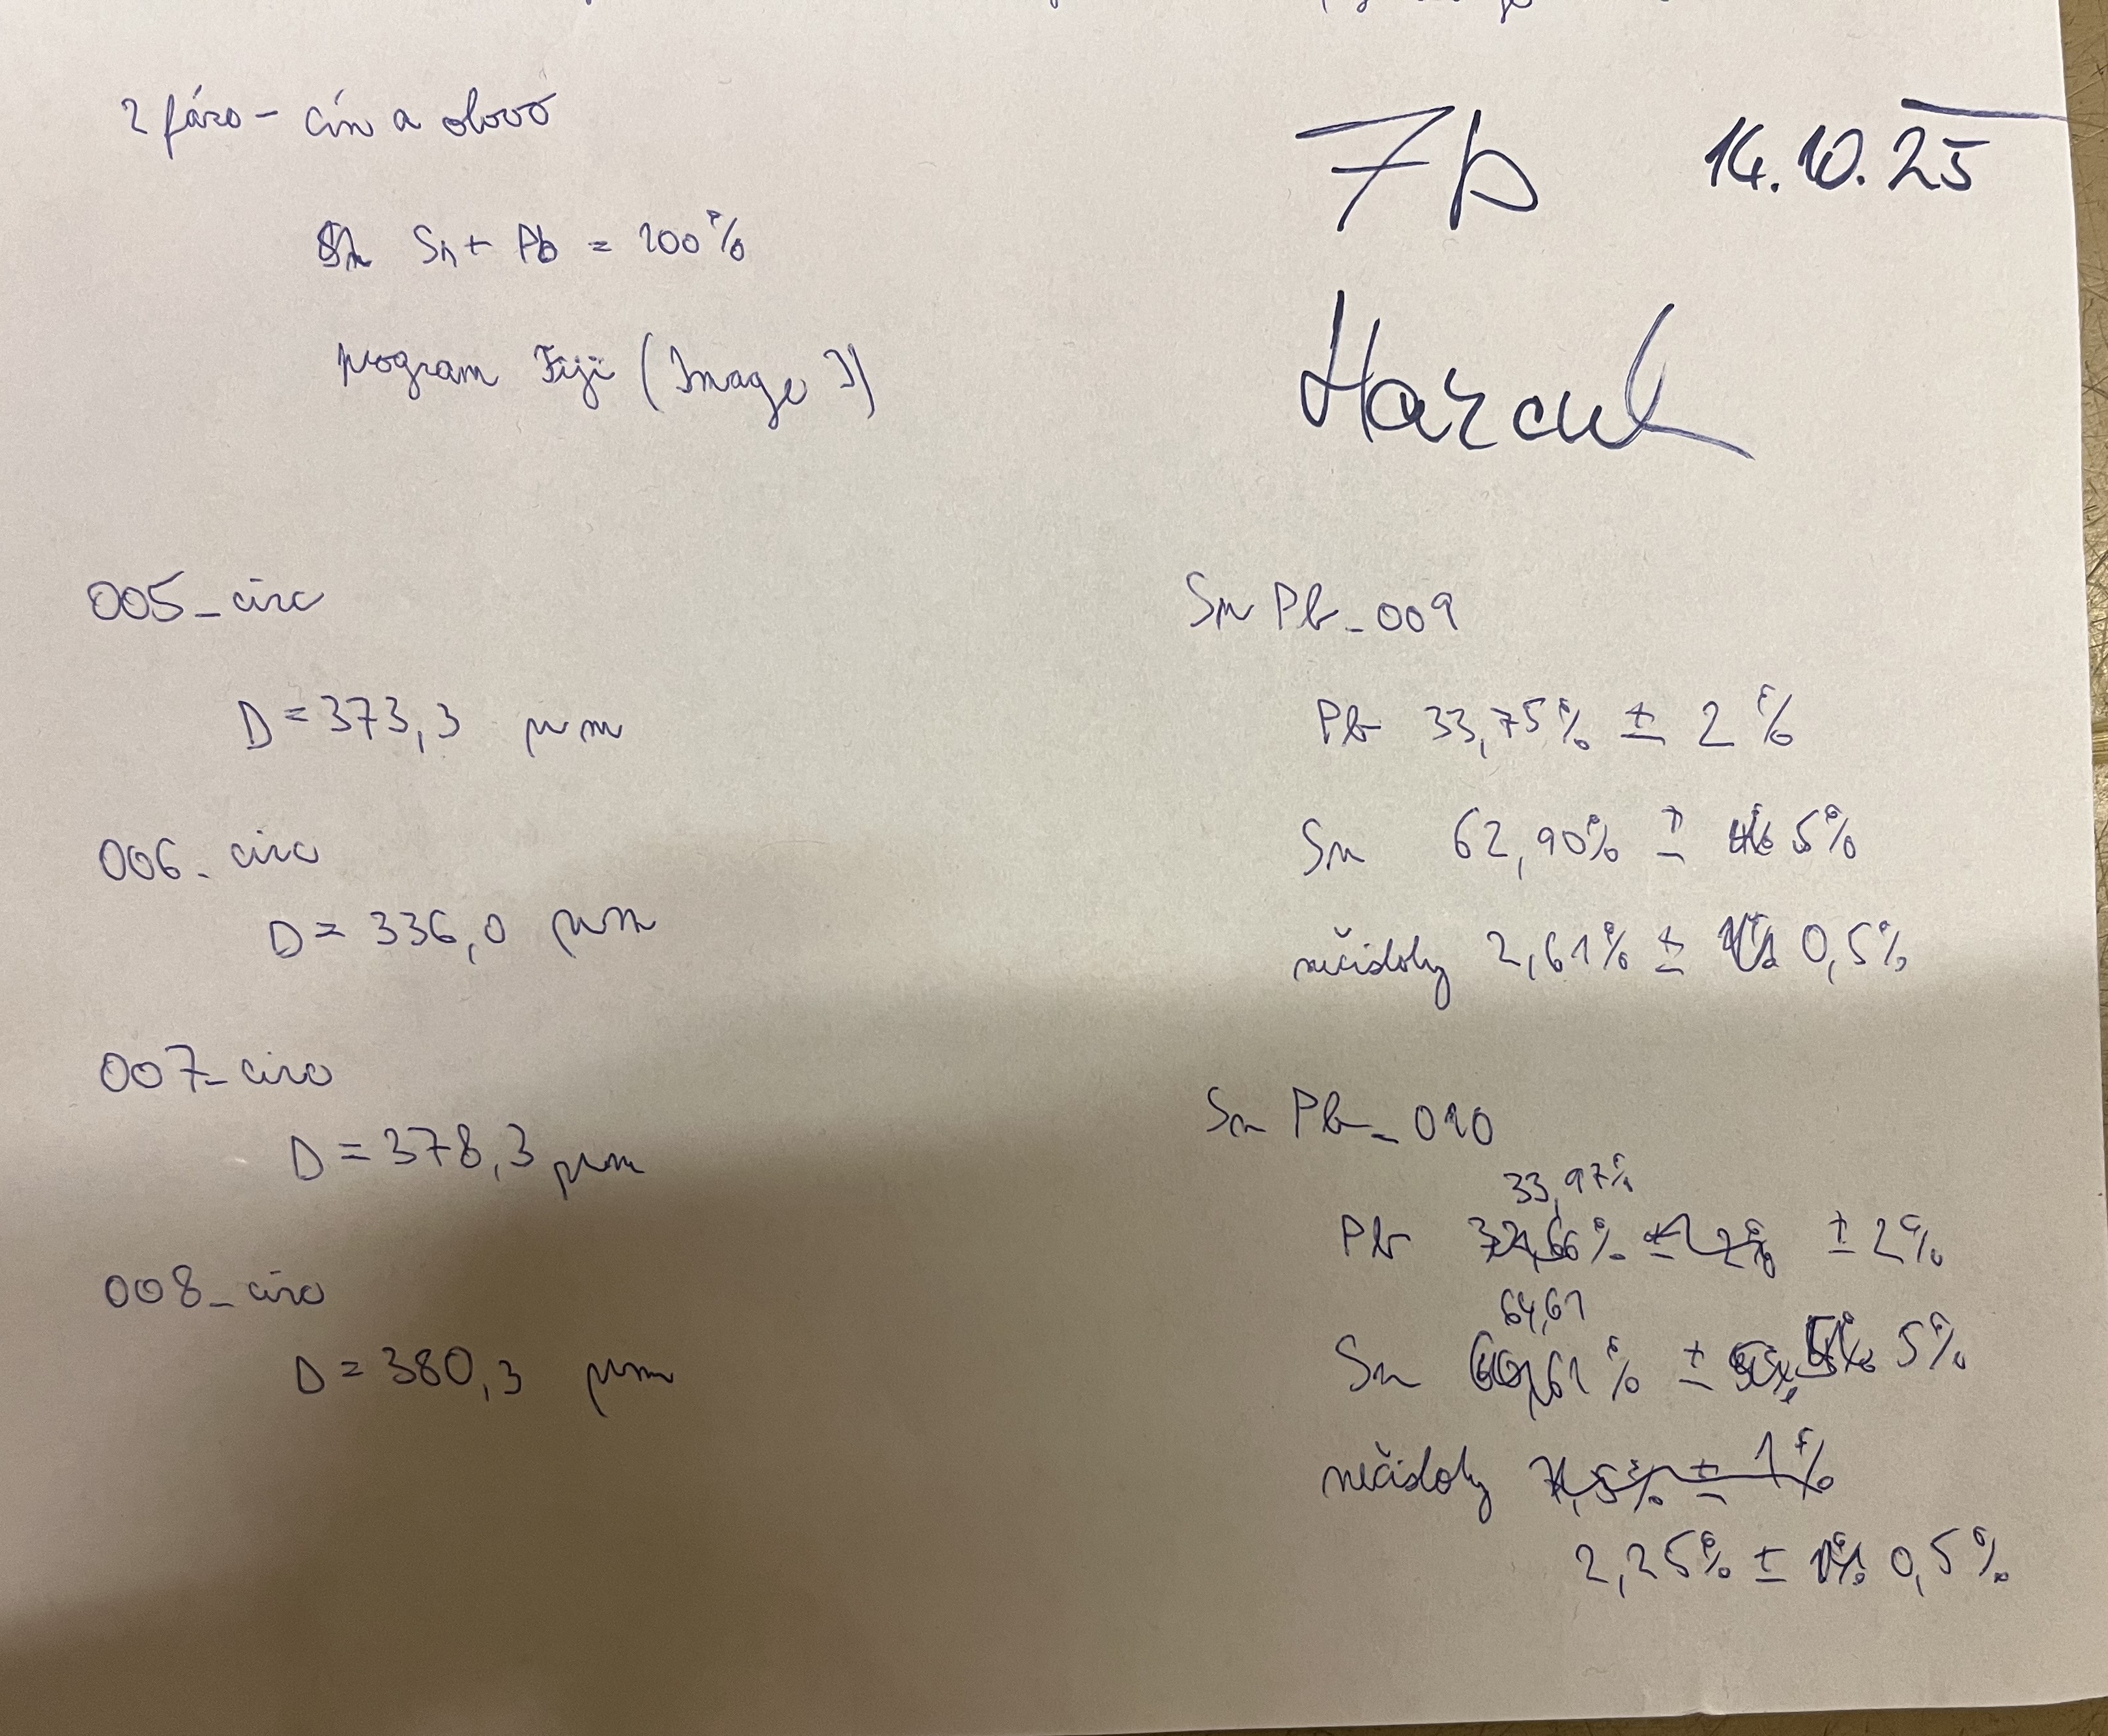 2 fáze - cín a olovo
Sn + Pb = 100%
program Fiji (Image J)
7b 14.10.25
005_circ
D = 373,3 µm
006_circ
D = 336,0 µm
007_circ
D = 378,3 µm
008_circ
D = 380,3 µm
Sn Pb_009
Pb 33,75% ± 2%
Sn 62,90% ± 5%
nečistoty 2,61% ± 0,5%
Sn Pb_010
33,97%
Pb ± 2%
64,61
Sn % ± 5%
nečistoty
2,25% ± 0,5%